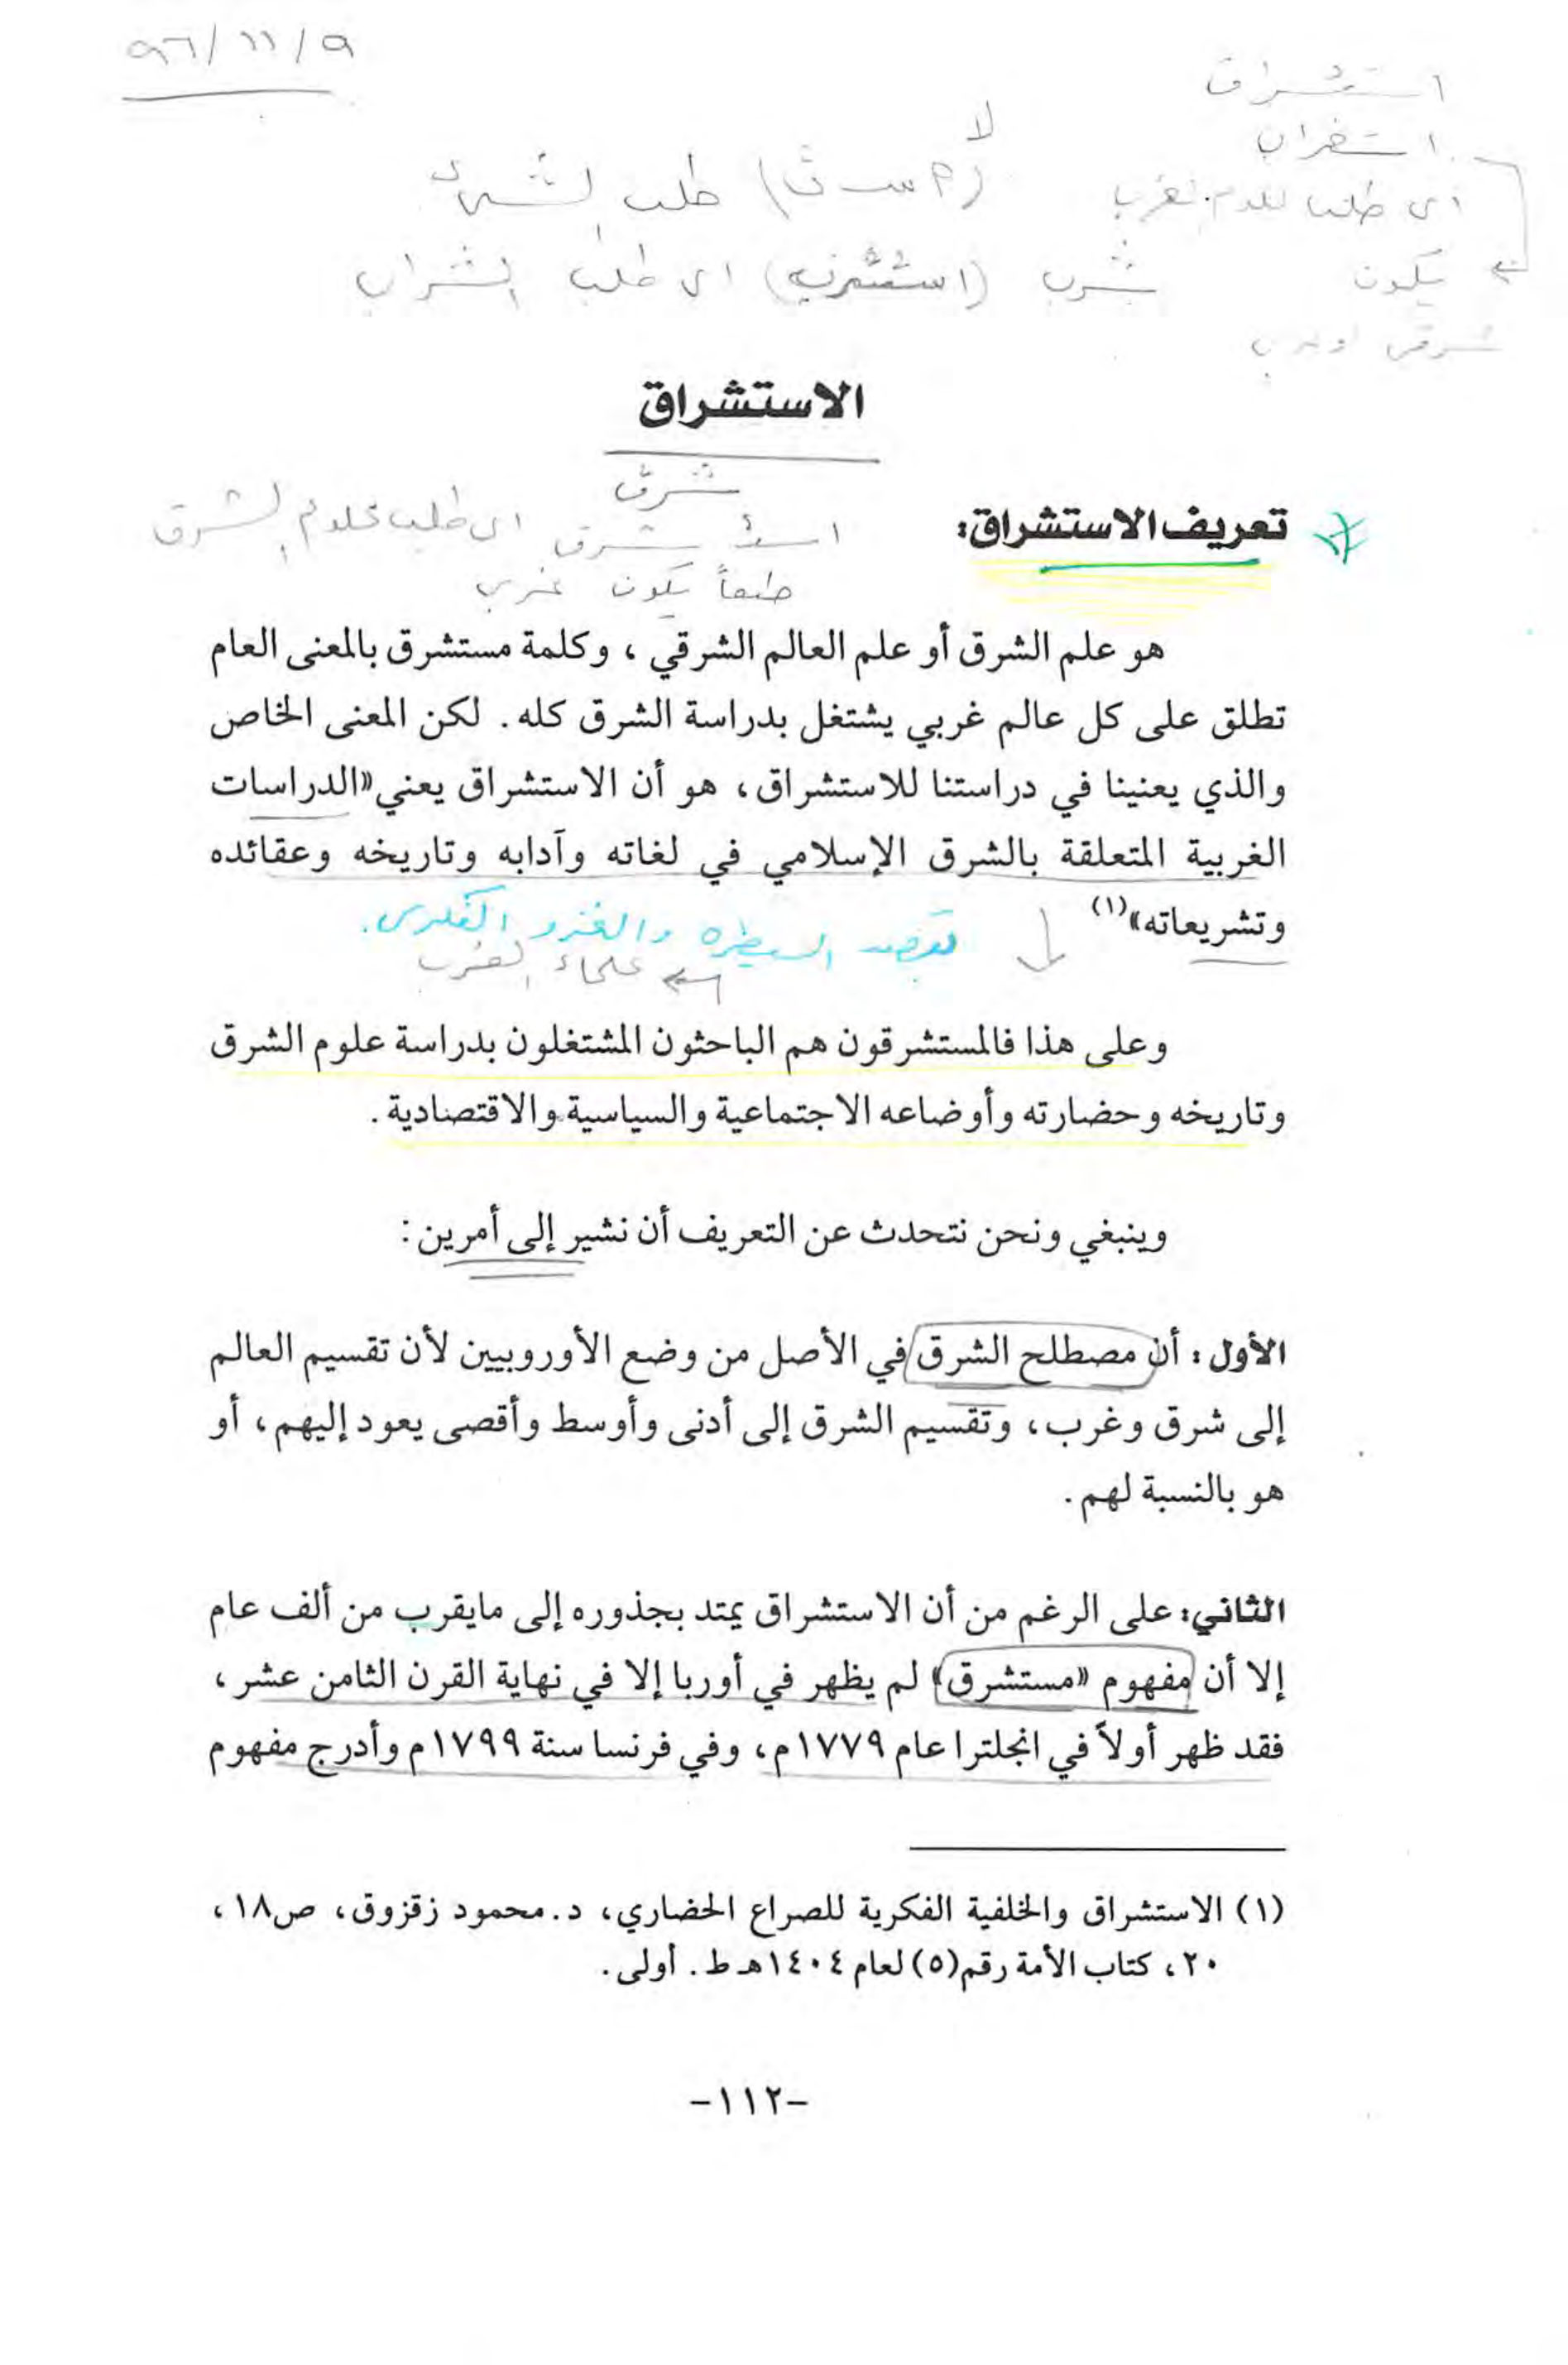 ٩٦/١١/٩
استشراق
استغراب
لا
اى طلب علوم الغرب
(ا س ت) طلب الشيء
يكون
شرب (استشرب) اى طلب الشراب
شرقى او غربي
الاستشراق
شرق
استشرق اى طلب علوم الشرق
تعريف الاستشراق:
طبعاً يكون غربي
هو علم الشرق أو علم العالم الشرقي ، وكلمة مستشرق بالمعنى العام
تطلق على كل عالم غربي يشتغل بدراسة الشرق كله . لكن المعنى الخاص
والذي يعنينا في دراستنا للاستشراق، هو أن الاستشراق يعني «الدراسات
الغربية المتعلقة بالشرق الإسلامي في لغاته وآدابه وتاريخه وعقائده
وتشريعاته»(١)
بقصد السيطره والغزو الفكرى.
علماء الغرب
وعلى هذا فالمستشرقون هم الباحثون المشتغلون بدراسة علوم الشرق
وتاريخه وحضارته وأوضاعه الاجتماعية والسياسية والاقتصادية .
وينبغي ونحن نتحدث عن التعريف أن نشير إلى أمرين :
الأول : أن مصطلح الشرق في الأصل من وضع الأوروبيين لأن تقسيم العالم
إلى شرق وغرب، وتقسيم الشرق إلى أدنى وأوسط وأقصى يعود إليهم، أو
هو بالنسبة لهم .
الثاني: على الرغم من أن الاستشراق يمتد بجذوره إلى مايقرب من ألف عام
إلا أن مفهوم «مستشرق» لم يظهر في أوربا إلا في نهاية القرن الثامن عشر ،
فقد ظهر أولاً في انجلترا عام ١٧٧٩م، وفي فرنسا سنة ١٧٩٩م وأدرج مفهوم
(١) الاستشراق والخلفية الفكرية للصراع الحضاري، د. محمود زقزوق، ص١٨،
٢٠، كتاب الأمة رقم(٥) لعام ١٤٠٤هـ ط. أولى.
-١١٢-